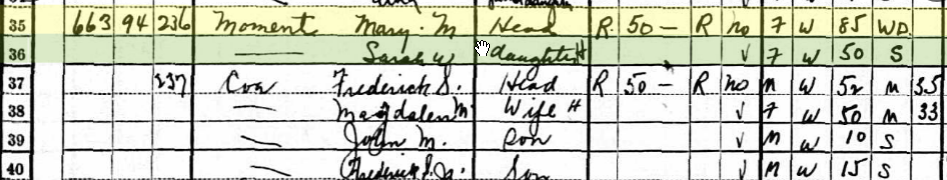 35 663 94 236 Moment Mary. M Head R. 50 — R no F W 85 WD.
36 —— Sarah W daughter H √ F W 50 S
37 237 Cox Frederick S. Head R 50 — R no M W 52 M 35
38 —— Magdalen M Wife H √ F W 50 M 33
39 —— John M. Son √ M W 10 S
40 —— Frederick S. Jr. Son √ M W 15 S